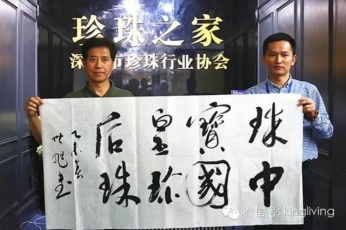 珍珠之家
深圳市珍珠行业协会
珠寶皇后
中國珍珠
乙未春
微信号: kingliving